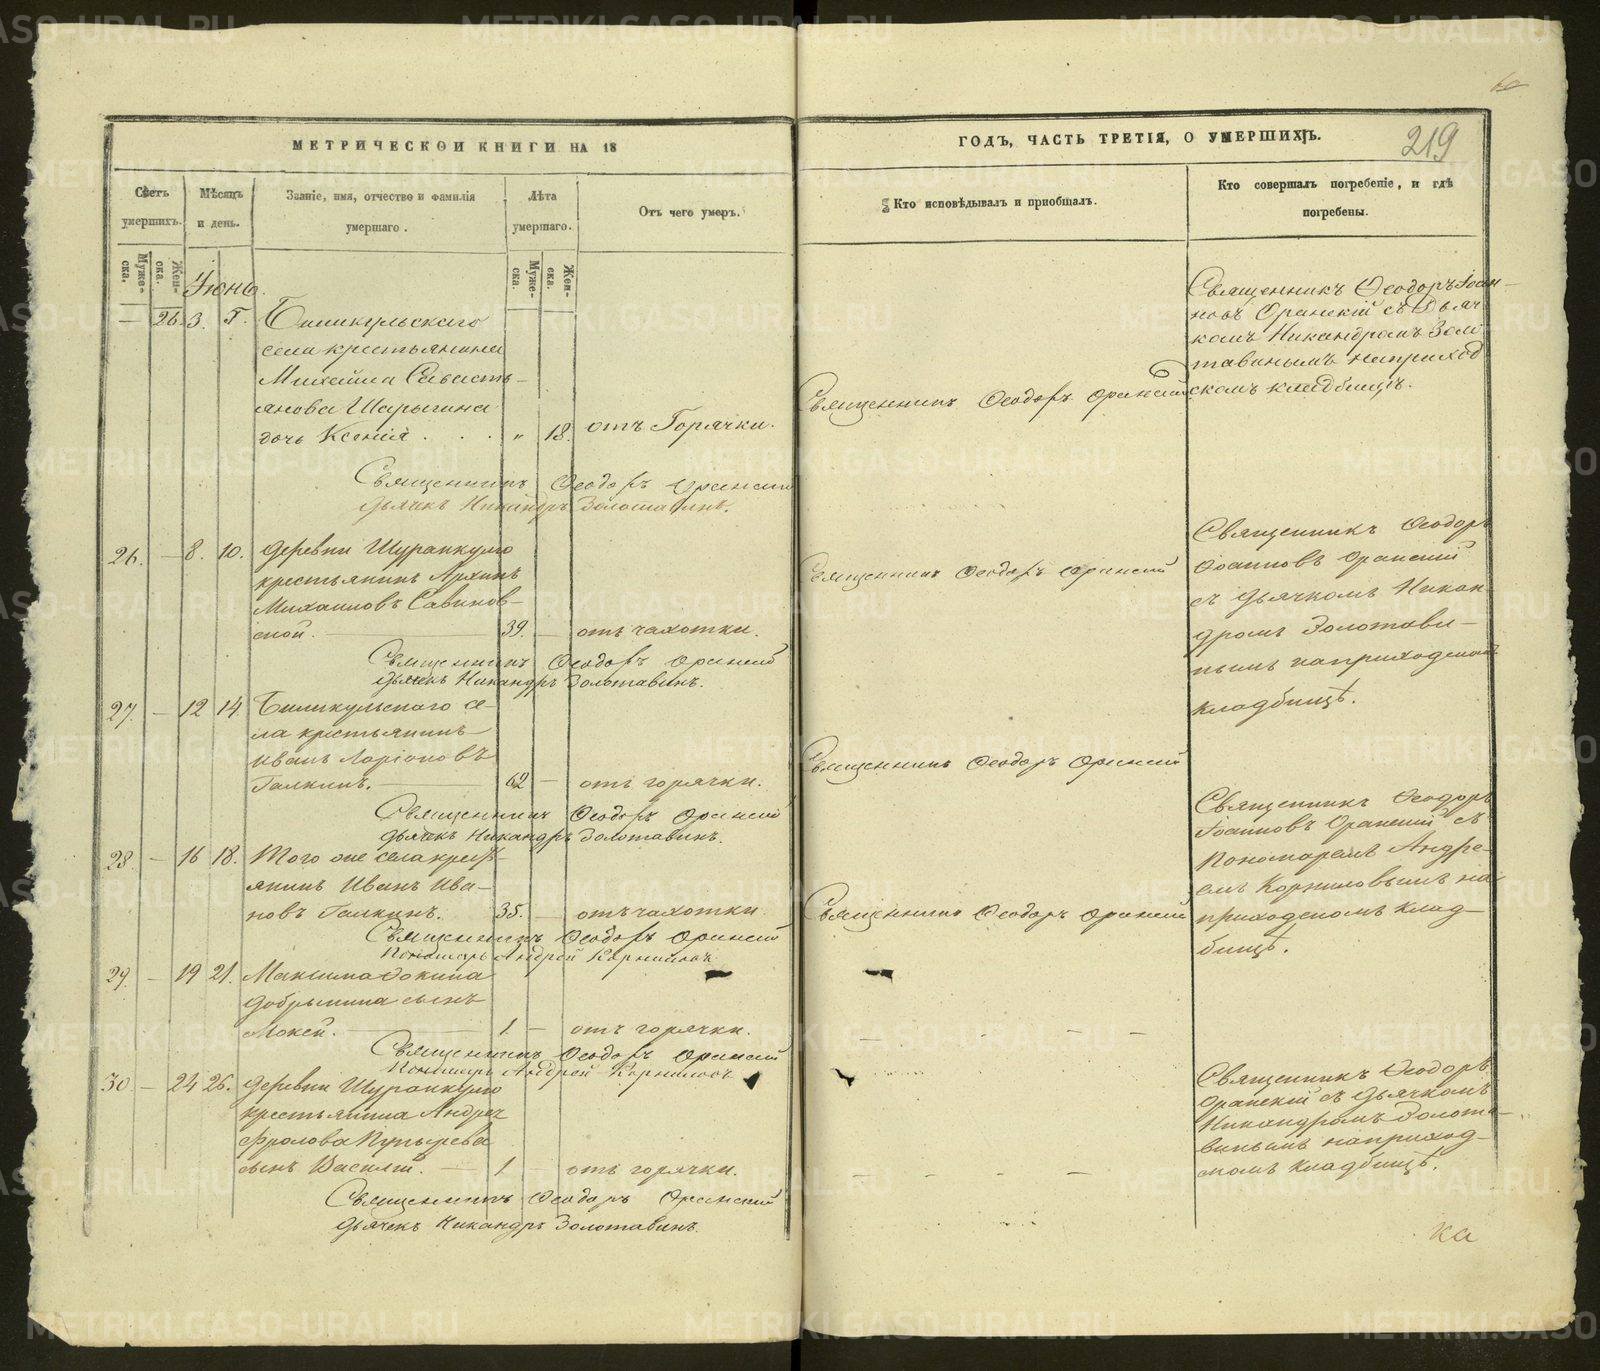 МЕТРИЧЕСКОЙ КНИГИ НА 18
ГОДЪ, ЧАСТЬ ТРЕТІЯ, О УМЕРШИХЪ.
219
Счетъ умершихъ.
Мѣсяцъ и день.
Званіе, имя, отчество и фамилія умершаго.
Лѣта умершаго.
Отъ чего умеръ.
Кто исповѣдывалъ и пріобщалъ.
Кто совершалъ погребеніе, и гдѣ погребены.
Муже-ска.
Жен-ска.
Муже-ска.
Жен-ска.
Іюнь.
— 26. 3. 5.
села крестьянина
Михаила Севасть-
янова Шарыгина
дочь Ксенія . . . " 18. отъ Горячки.
Священникъ Ѳеодоръ Оранскій
Священникъ Ѳеодоръ Іоан-
новъ Оранскій съ Дьяч-
комъ Никандромъ Золо-
тавинымъ наприход
скомъ кладбищѣ.
Священникъ Ѳеодоръ Оранскій
Дьячекъ Никандръ Золотавинъ.
26. — 8. 10. Деревни
крестьянинъ Архипъ
Михаиловъ Савинов-
ской. 39. — отъ чахотки.
Священникъ Ѳеодоръ Оранскій
Священникъ Ѳеодоръ
Іоанновъ Оранскій
съ Дьячкомъ Никан-
дромъ Золотави-
нымъ наприходскомъ
кладбищѣ.
Священникъ Ѳеодоръ Оранскій
Дьячекъ Никандръ Золотавинъ.
27. — 12 14. се-
ла крестьянинъ
Иванъ Ларіоновъ
Галкинъ. 62 — отъ горячки.
Священникъ Ѳеодоръ Оранскій
Священникъ Ѳеодоръ Оранскій
Дьячекъ Никандръ Золотавинъ.
28. — 16 18. Того же села крест-
янинъ Иванъ Ива-
новъ Галкинъ. 35. — отъ чахотки.
Священникъ Ѳеодоръ Оранскій
Священникъ Ѳеодоръ
Іоанновъ Оранскій съ
Пономаремъ Андре-
емъ Корниловымъ на
приходскомъ клад-
бищѣ.
Священникъ Ѳеодоръ Оранскій
Пономарь Андрей Корниловъ
29. — 19 21. Максима
Добрынина сынъ
Мокей. 1. — отъ горячки. — — — —
Священникъ Ѳеодоръ Оранскій
Пономарь Андрей Корниловъ
30 — 24 26. Деревни
крестьянина Андрея
Фролова Пупырева
сынъ Василій. — 1 — отъ горячки. — — — —
Священникъ Ѳеодоръ
Оранскій съ Дьячкомъ
Никандромъ Золота-
винымъ наприход-
скомъ кладбищѣ.
Священникъ Ѳеодоръ Оранскій
Дьячекъ Никандръ Золотавинъ.
ка
METRIKI.GASO-URAL.RU